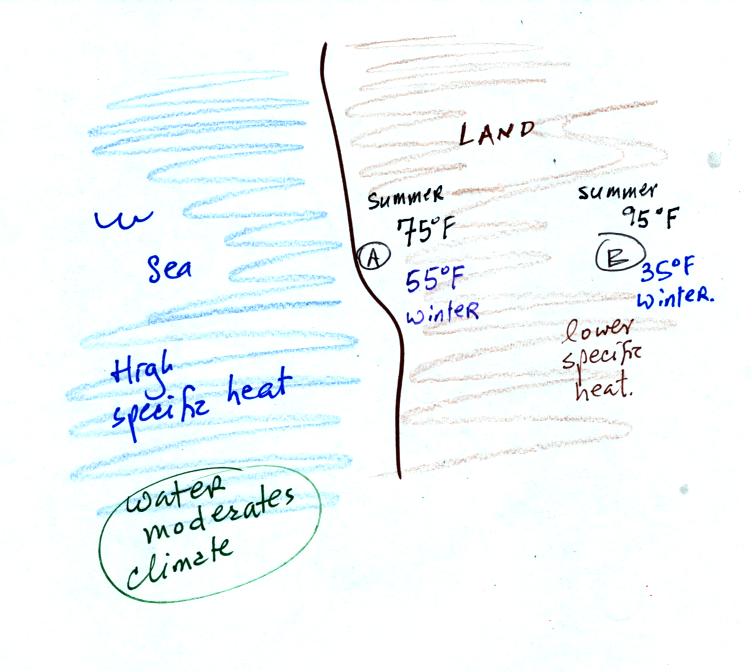 LAND
Summer
75°F
A
55°F
winter
summer
95°F
B
35°F
winter.
lower
specific
heat.
Sea
High
specific heat
water
moderates
climate